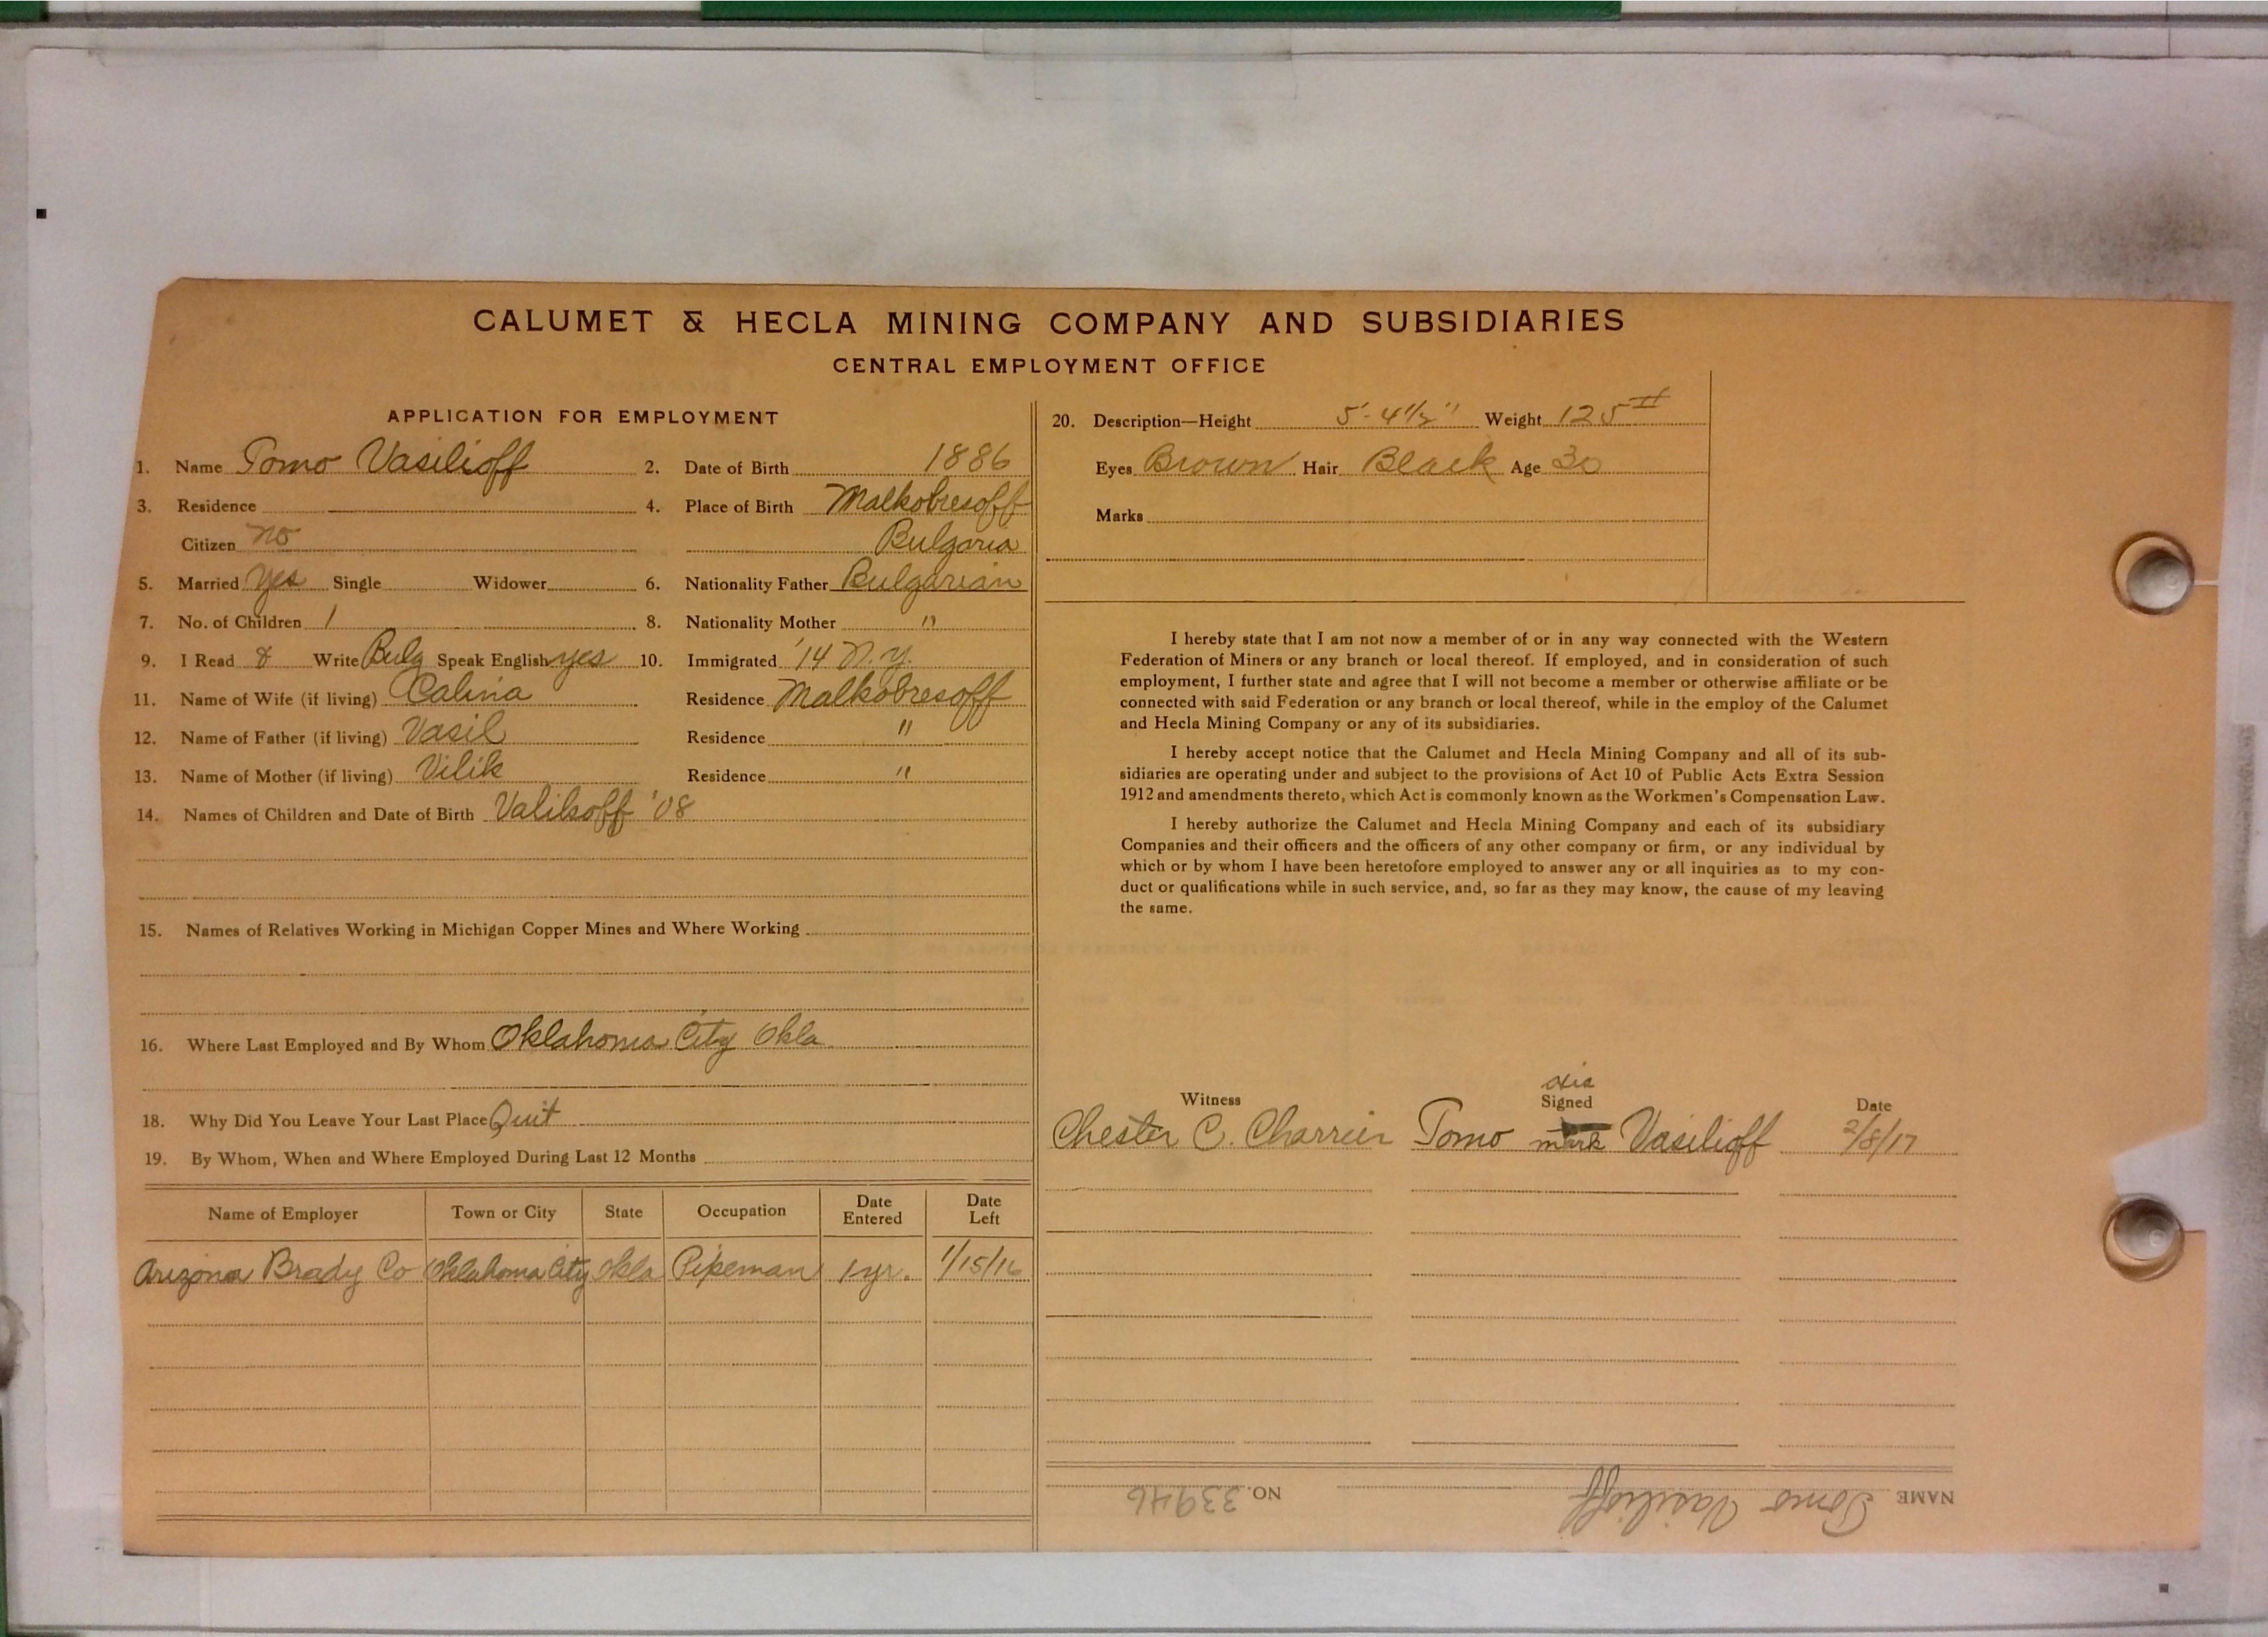 CALUMET & HECLA MINING COMPANY AND SUBSIDIARIES
CENTRAL EMPLOYMENT OFFICE
APPLICATION FOR EMPLOYMENT
1. Name Tomo Vasilioff 2. Date of Birth 1886
3. Residence 4. Place of Birth Malkobresoff
Citizen no Bulgaria
5. Married Yes Single Widower 6. Nationality Father Bulgarian
7. No. of Children 1 8. Nationality Mother "
9. I Read & Write Bulg Speak English yes 10. Immigrated '14 N.Y.
11. Name of Wife (if living) Calina Residence Malkobresoff
12. Name of Father (if living) Vasil Residence "
13. Name of Mother (if living) Vilik Residence "
14. Names of Children and Date of Birth Valiksoff '08
15. Names of Relatives Working in Michigan Copper Mines and Where Working
16. Where Last Employed and By Whom Oklahoma City Okla
18. Why Did You Leave Your Last Place Quit
19. By Whom, When and Where Employed During Last 12 Months
Name of Employer Town or City State Occupation Date Entered Date Left
Arizona Brady Co Oklahoma City Okla Pipeman 1 yr. 1/15/16
20. Description—Height 5'-4½" Weight 125#
Eyes Brown Hair Black Age 30
Marks
I hereby state that I am not now a member of or in any way connected with the Western
Federation of Miners or any branch or local thereof. If employed, and in consideration of such
employment, I further state and agree that I will not become a member or otherwise affiliate or be
connected with said Federation or any branch or local thereof, while in the employ of the Calumet
and Hecla Mining Company or any of its subsidiaries.
I hereby accept notice that the Calumet and Hecla Mining Company and all of its sub-
sidiaries are operating under and subject to the provisions of Act 10 of Public Acts Extra Session
1912 and amendments thereto, which Act is commonly known as the Workmen's Compensation Law.
I hereby authorize the Calumet and Hecla Mining Company and each of its subsidiary
Companies and their officers and the officers of any other company or firm, or any individual by
which or by whom I have been heretofore employed to answer any or all inquiries as to my con-
duct or qualifications while in such service, and, so far as they may know, the cause of my leaving
the same.
his
Witness Signed Date
Chester C. Charrier Tomo mark Vasilioff 2/8/17
NAME Tomo Vasilioff NO. 33946